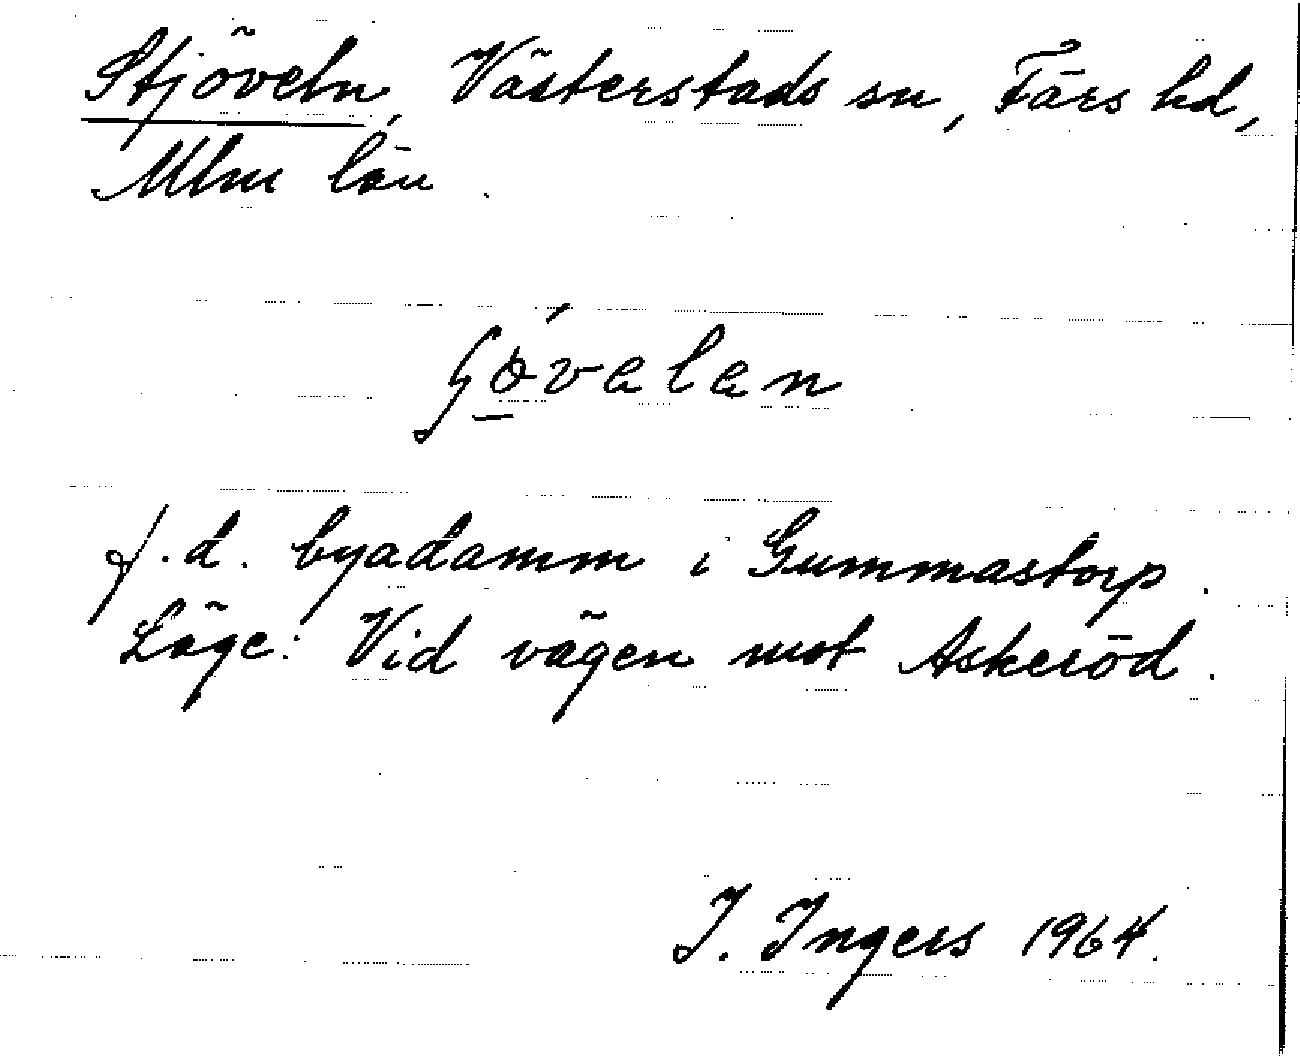 Stjöveln, Västerstads sn, Färs hd,
Mlm län.
f.d. byadamm i Gummastorp.
Läge: Vid vägen mot Askeröd.
I. Ingers 1964.